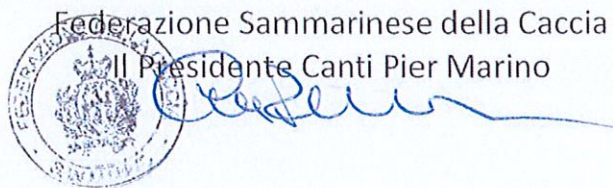 Federazione Sammarinese della Caccia
Il Presidente Canti Pier Marino